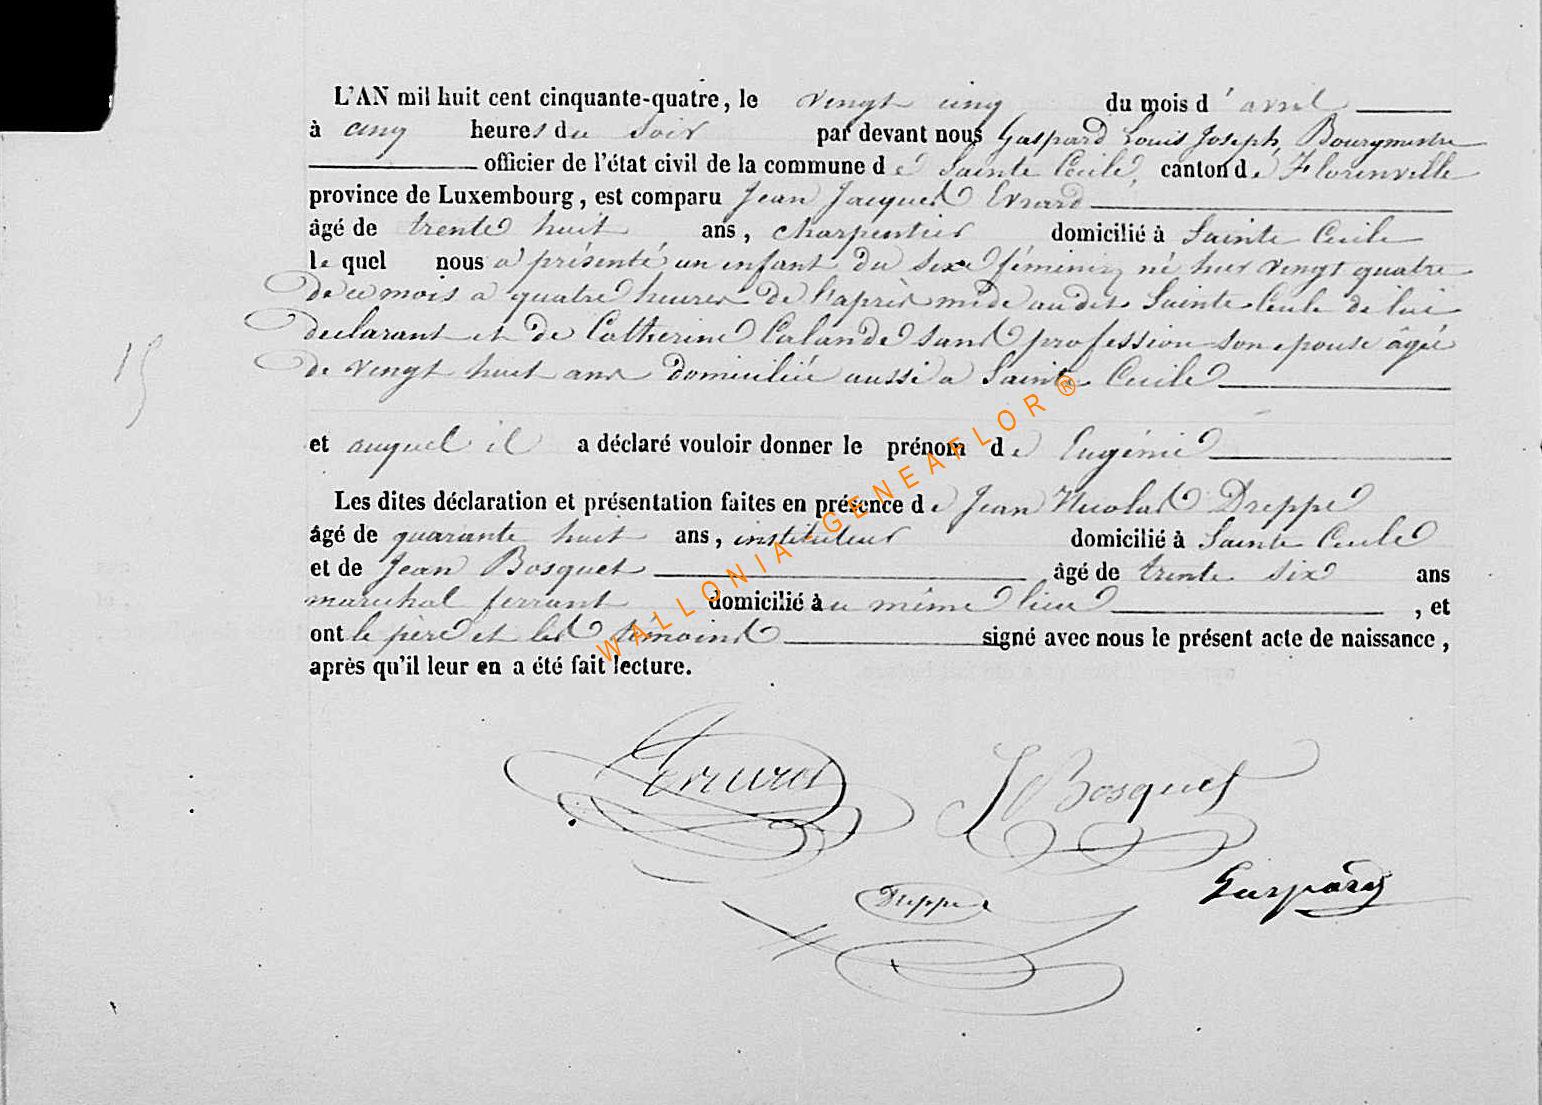 L'AN mil huit cent cinquante-quatre, le vingt cinq du mois d'avril
à cinq heures du soir par devant nous Gaspard Louis Joseph, Bourgmestre
officier de l'état civil de la commune de Sainte Cecile, canton de Florenville
province de Luxembourg, est comparu Jean Jacques Evrard
âgé de trente huit ans, charpentier domicilié à Sainte Cecile
le quel nous a présenté un enfant du sexe féminin né hier vingt quatre
de ce mois a quatre heures de l'après midi audit Sainte Cecile de lui
declarant et de Catherine Calande sans profession son epouse âgée
de vingt huit ans domiciliée aussi a Sainte Cecile
15
et auquel il a déclaré vouloir donner le prénom de Eugénie
Les dites déclaration et présentation faites en présence de Jean Nicolas Dreppe
âgé de quarante huit ans, instituteur domicilié à Sainte Cecile
et de Jean Bosquet âgé de trente six ans
marechal ferrant domicilié au même lieu, et
ont le père et les témoins signé avec nous le présent acte de naissance,
après qu'il leur en a été fait lecture.
WALLONIA GENEAFLOR ®
Evrard
J Bosquet
Dreppe
Gaspard